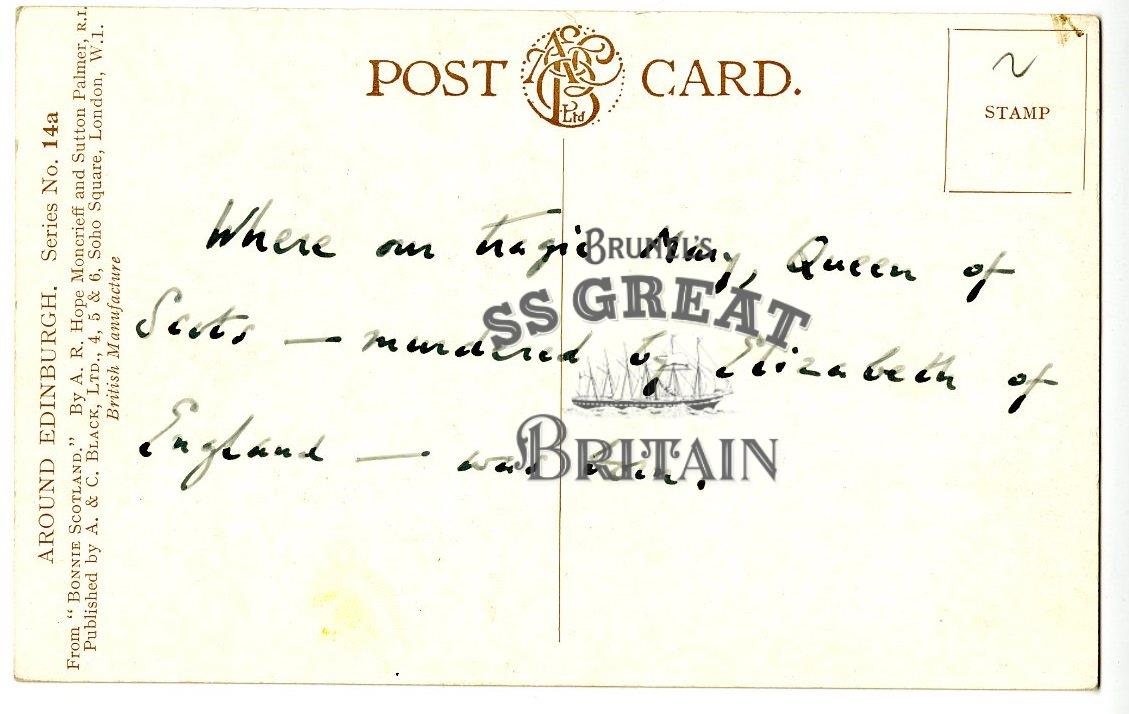 POST CARD.
A&CB Ltd
STAMP
AROUND EDINBURGH. Series No. 14a
From "BONNIE SCOTLAND." By A. R. Hope Moncrieff and Sutton Palmer, R.I.
Published by A. & C. BLACK, LTD., 4, 5 & 6, Soho Square, London, W.1.
British Manufacture
Where our tragic Mary, Queen of
Scots — murdered by Elizabeth of
England — was born.
BRUNEL'S
SS GREAT
BRITAIN